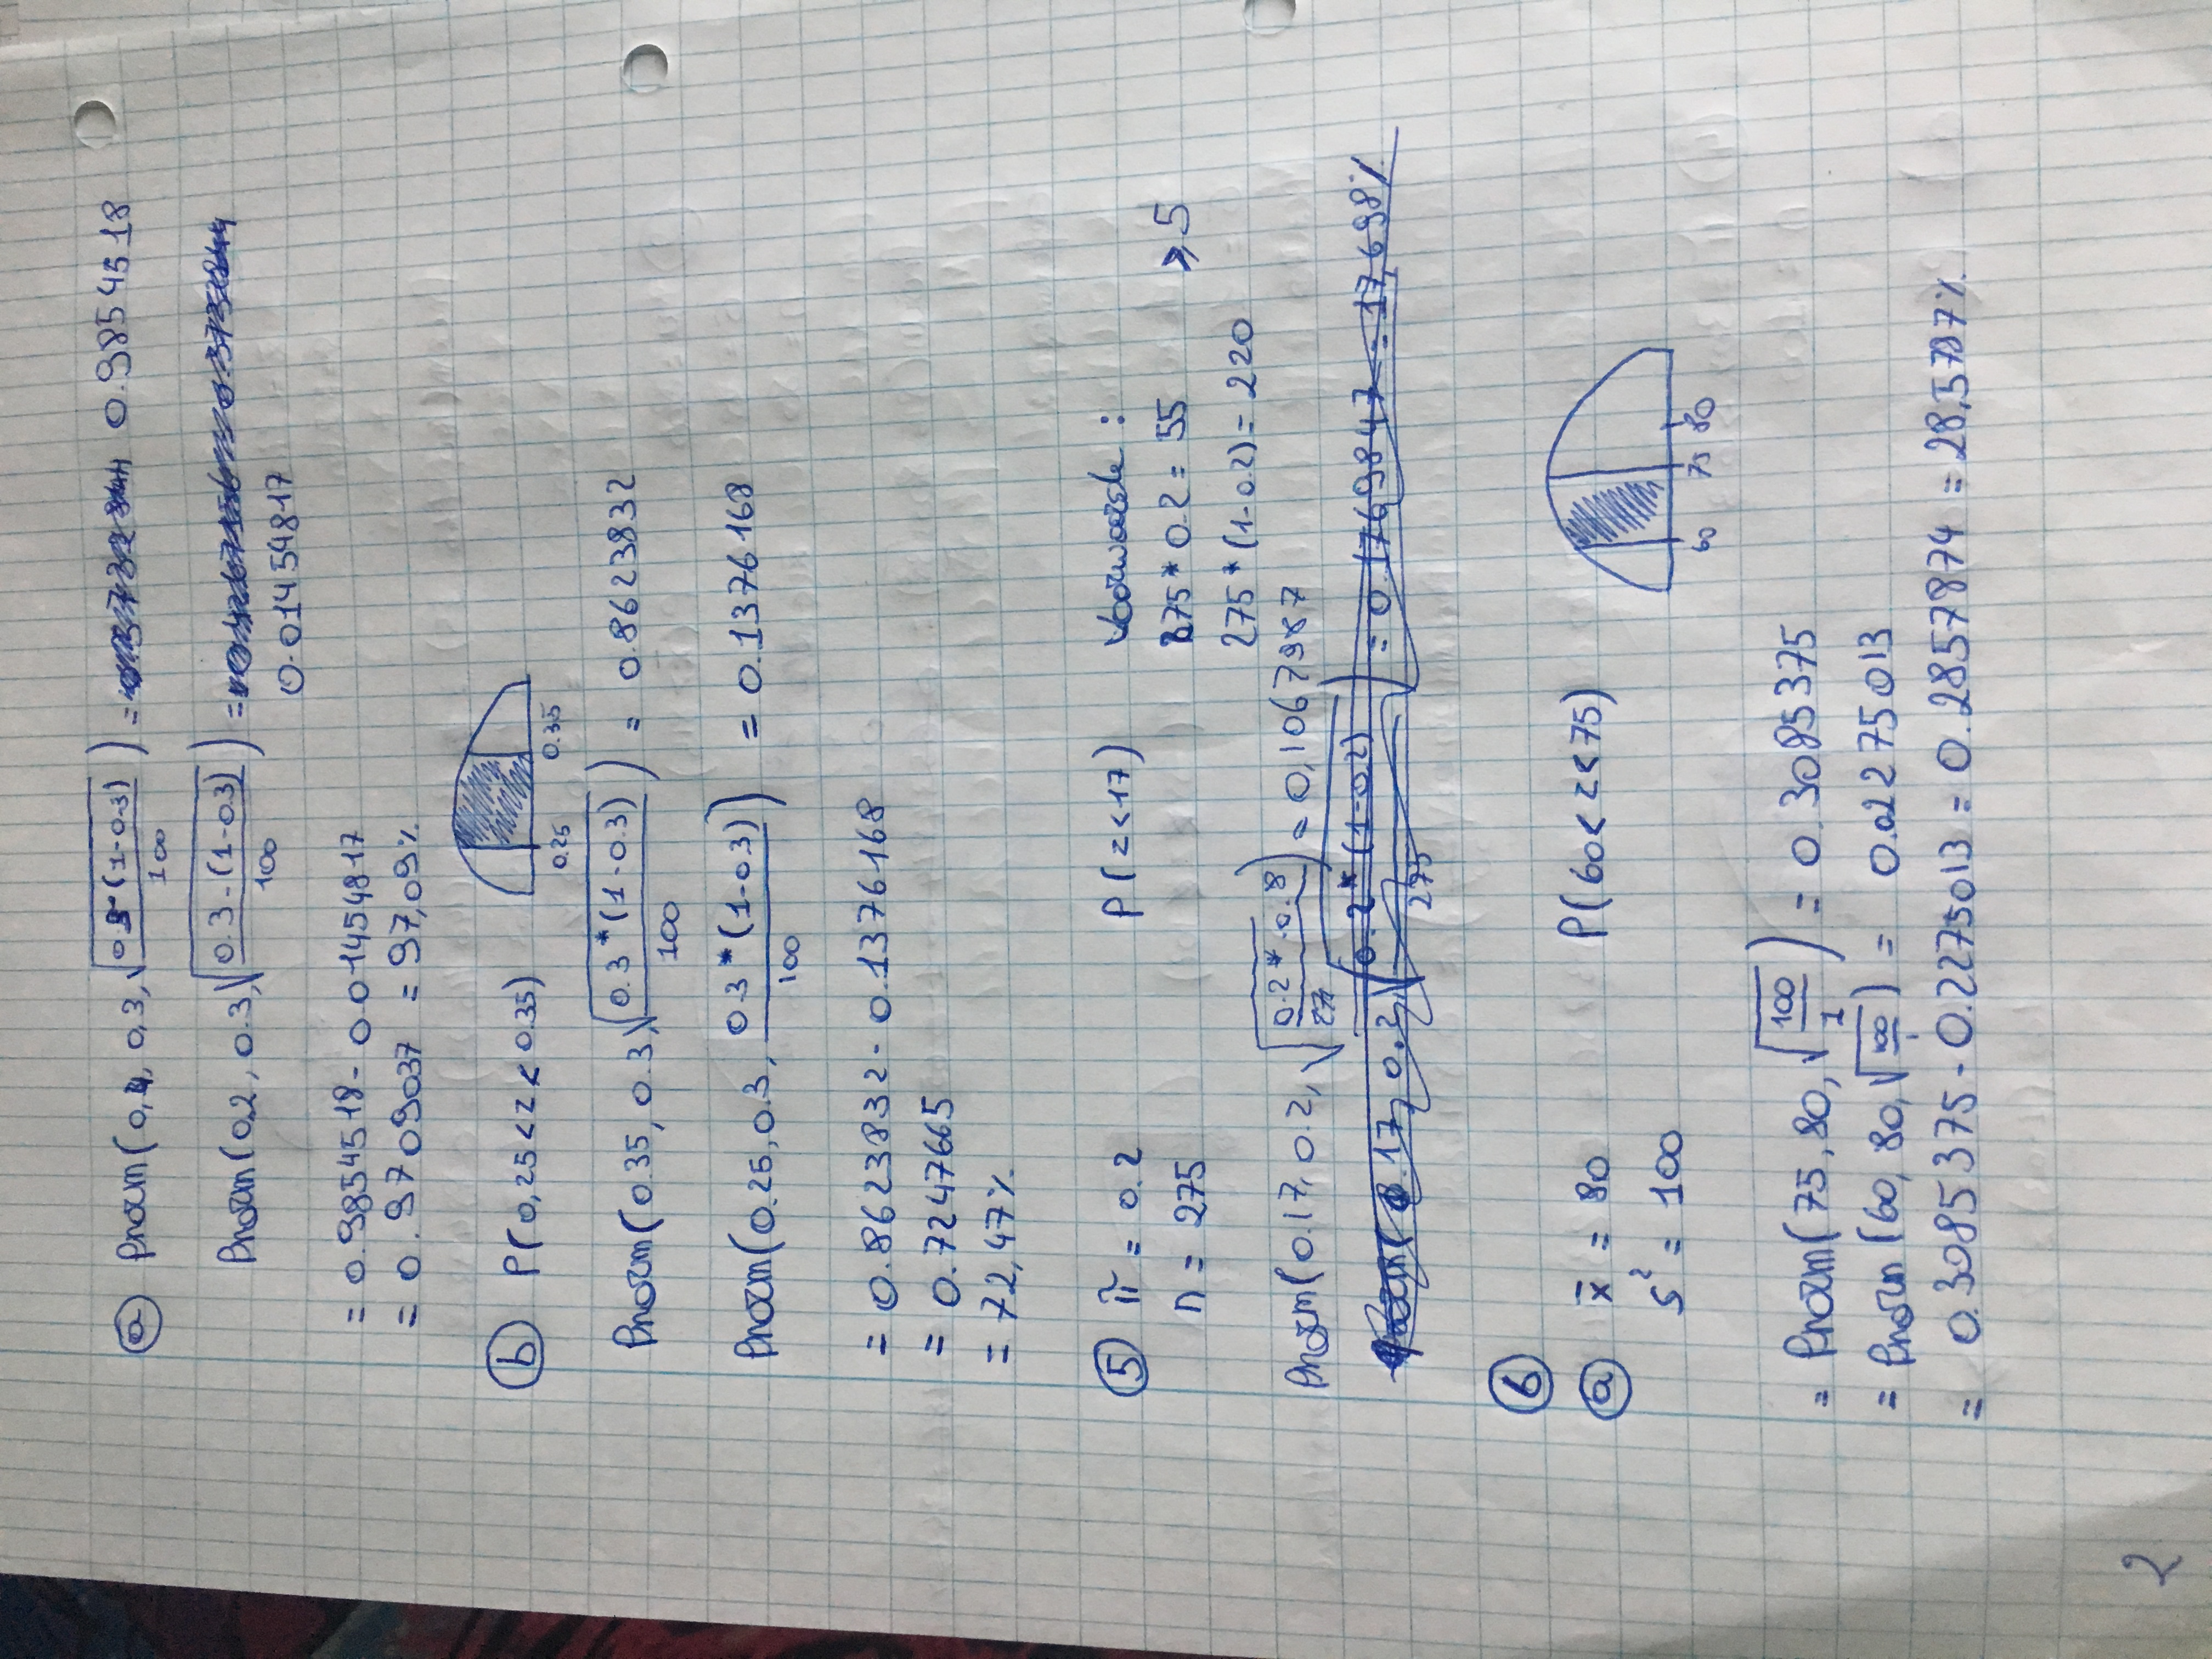 ⓐ Pnorm(0,4, 0,3, √(0.3*(1-0.3)/100)) = 0.9854518
Pnorm(0.2, 0.3, √(0.3-(1-0.3)/100)) =
0.01454817
= 0.9854518 - 0.01454817
= 0.9709037 = 97,09%
ⓑ P(0,25<z<0.35)
0.25 0.35
Pnorm(0.35, 0.3, √(0.3*(1-0.3)/100)) = 0.8623832
Pnorm(0.25, 0.3, 0.3*(1-0.3)/100) = 0.1376168
= 0.8623832 - 0.1376168
= 0.7247665
= 72,47%
⑤ π = 0.2 P(z<17) Voorwaarde:
n = 275 275*0.2 = 55 ≥5
275*(1-0.2) = 220
Pnorm(0.17, 0.2, √(0.2*0.8/275)) = 0,1067987
Pnorm(0.17, 0.2, √(0.2*(1-0.2)/275)) = 0.1769847 = 17,698%
⑥
ⓐ x̄ = 80 P(60<z<75)
s² = 100
60 75 80
= Pnorm(75, 80, √(100/1)) = 0.3085375
= Pnorm(60, 80, √(100/1)) = 0.02275013
= 0.3085375 - 0.2275013 = 0.2857874 = 28,5787%
2